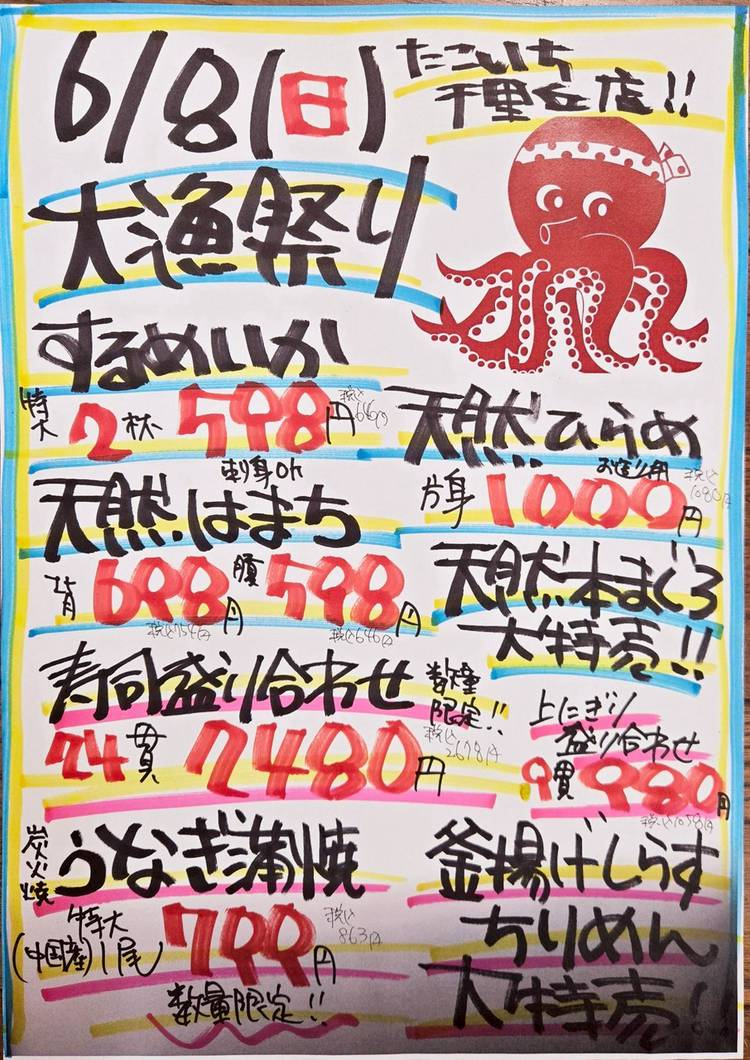 6/8(日)
たこいち
千里丘店!!
大漁祭り
するめいか
特大 2杯 598円 税込646円
刺身OK
天然ひらめ
お造り用
片身 1000円 税込1080円
天然はまち
背 698円 税込754円
腹 598円 税込646円
天然本まぐろ
大特売!!
寿司盛り合わせ
数量限定!!
24貫 2480円 税込2678円
上にぎり
盛り合わせ
9貫 980円
税込1058円
炭火焼 うなぎ蒲焼
特大
(中国産)1尾 799円 税込863円
数量限定!!
釜揚げしらす
ちりめん
大特売!!